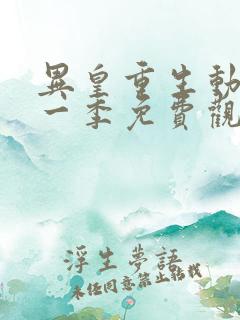 異皇重生動
一季免費觀
浮生夢語
未經同意禁止轉載